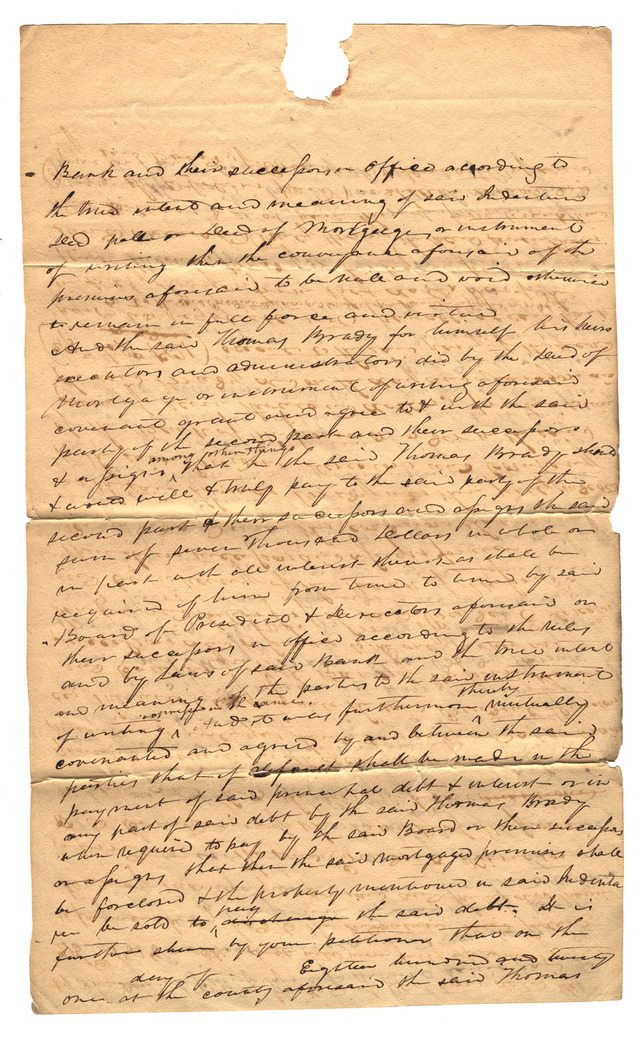 Bank and their successors in office according to
the true intent and meaning of said Indenture
deed poll or deed of Mortgage, or instrument
of writing then the conveyance aforesaid of the
premises aforesaid to be null and void otherwise
to remain in full force and virtue
And the said Thomas Brady for himself his heirs
executors and administrators did by the deed of
Mortgage or instrument of writing aforesaid
covenant grant and agree to & with the said
party of the second part and their successors
& assigns among other things that he the said Thomas Brady should
& would well & truly pay to the said party of the
second part & their successors and assigns the said
sum of seven Thousand Dollars in whole or
in part with all interest thereon as shall be
required of him from time to time by said
Board of President & Directors aforesaid or
their successors in office according to the rules
and by Laws of said Bank and the true intent
and meaning of the parties to the said instrument
of writing And it was furthermore thereby mutually
covenanted and agreed by and between the said
parties that if default shall be made in the
payment of said principal debt & interest or in
any part of said debt by the said Thomas Brady
when required to pay by the said Board or their successors
or assigns that then the said mortgaged premises shall
be foreclosed & the property mentioned in said Indentu
re be sold to pay discharge the said debt. It is
further shewn by your petitioner that on the
day of Eighteen hundred and twenty
one at the county aforesaid the said Thomas